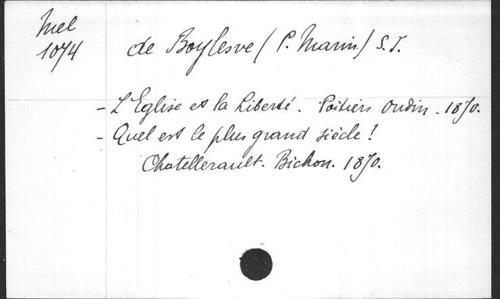 Mel
1074
de Boylesve (P. Marin) S.J.
- L'Eglise et la Liberté. Poitiers Oudin. 1870.
- Quel est le plus grand siècle !
Chatellerault. Bichon. 1870.